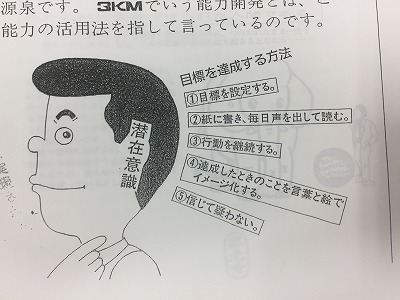 源泉です。 3KMでいう能力開発とは、
能力の活用法を指して言っているのです。
目標を達成する方法
①目標を設定する。
②紙に書き、毎日声を出して読む。
③行動を継続する。
④達成したときのことを言葉と絵で
イメージ化する。
⑤信じて疑わない。
潜在意識